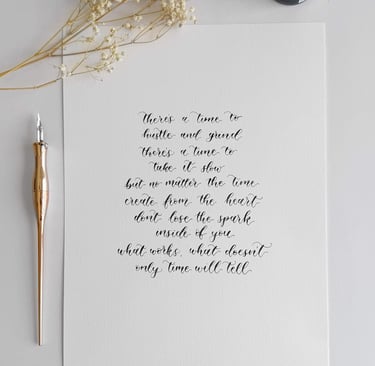 there's a time to
hustle and grind
there's a time to
take it slow
but no matter the time
create from the heart
don't lose the spark
inside of you
what works, what doesn't
only time will tell